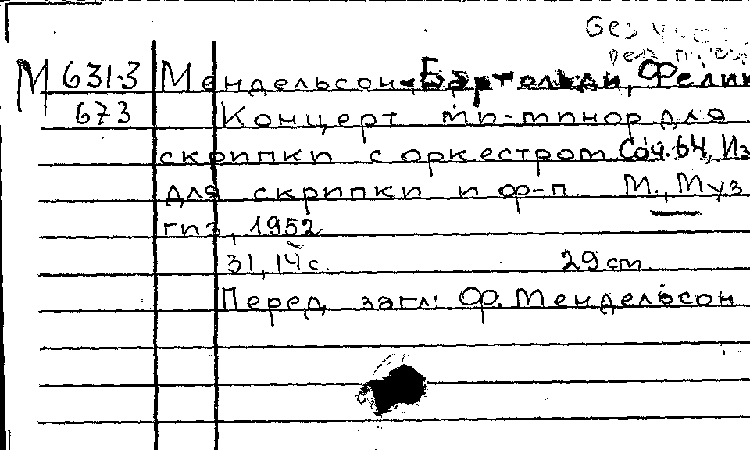 без
М 631-3 Мендельсон-Бартольди, Фелик
673 Концерт ми-минор для
скрипки с оркестром Соч. 64, Из
для скрипки и ф-п М., Муз
гиз, 1952
31, 14 с. 29 cm.
Перед загл: Ф. Мендельсон